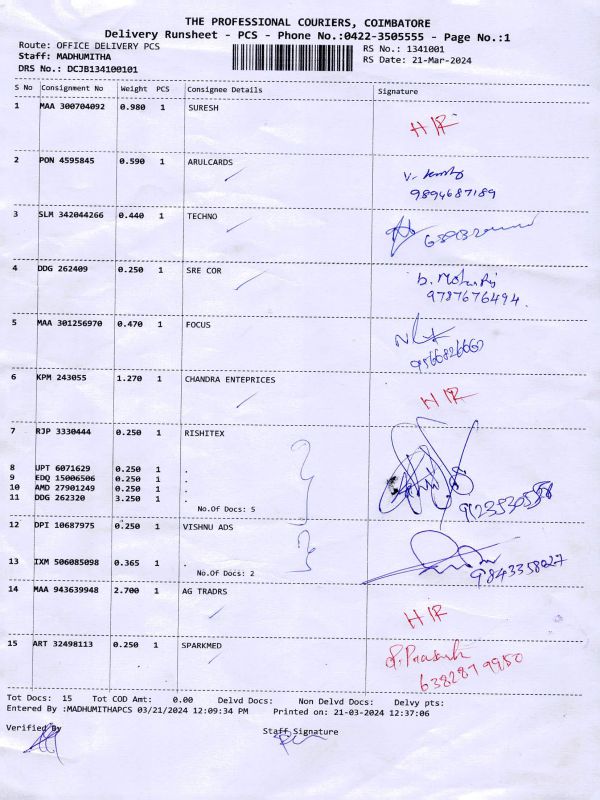 THE PROFESSIONAL COURIERS, COIMBATORE
Delivery Runsheet - PCS - Phone No.:0422-3505555 - Page No.:1
Route: OFFICE DELIVERY PCS RS No.: 1341001
Staff: MADHUMITHA RS Date: 21-Mar-2024
DRS No.: DCJB134100101
S No Consignment No Weight PCS Consignee Details Signature
1 MAA 300704092 0.980 1 SURESH
2 PON 4595845 0.590 1 ARULCARDS
9894687189
3 SLM 342044266 0.440 1 TECHNO
4 DDG 262409 0.250 1 SRE COR
9787676494.
5 MAA 301256970 0.470 1 FOCUS
9566826660
6 KPM 243055 1.270 1 CHANDRA ENTEPRICES
7 RJP 3330444 0.250 1 RISHITEX
8 UPT 6071629 0.250 1 .
9 EDQ 15006506 0.250 1 .
10 AMD 27901249 0.250 1 .
11 DDG 262320 3.250 1 .
No.Of Docs: 5
12 DPI 10687975 0.250 1 VISHNU ADS
13 IXM 506085098 0.365 1 .
No.Of Docs: 2
9843358027
14 MAA 943639948 2.700 1 AG TRADRS
15 ART 32498113 0.250 1 SPARKMED
P. Prakash
638287 9950
Tot Docs: 15 Tot COD Amt: 0.00 Delvd Docs: Non Delvd Docs: Delvy pts:
Entered By :MADHUMITHAPCS 03/21/2024 12:09:34 PM Printed on: 21-03-2024 12:37:06
Verified By Staff Signature